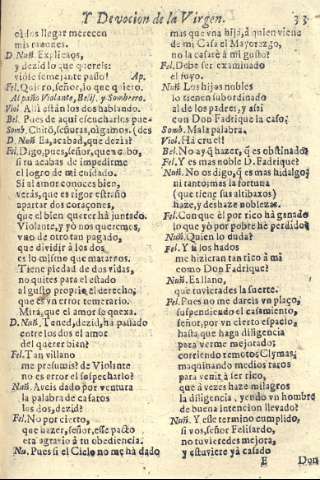 Y Devocion de la Virgen. 33
ellos llegar merecen
mis razones.
D. Nuñ. Explicaos,
y dezid lo que quereis:
viòse semejante passo! Ap.
Fel. Quiero, señor, lo que quiero.
Al paño Violante, Belis. y Sombrero.
Viol. Allí están los dos hablando.
Bel. Pues de aqui escucharlos puedes
Somb. Chitò, señuras, oigamos.
D. Nuñ. Ea, acabad, que dezis?
Fel. Digo, pues, señor, que es dabo,
si tu acabas de impedirme
el logro de mi cuidado.
Si al amor conoces bien,
veràs, que es rigor estraño
apartar dos coraçones,
que el bien querer hà juntado.
Violante, y yò nos queremos,
vno de otro tan pagado,
que dividir à los dos,
es lo mismo que matarnos.
Tiene piedad de dos vidas,
no quites para el estado
al gusto proprio el derecho,
que es vn error temerario.
Mirà, que el amor se quexa.
D. Nuñ. Tened, dezid, hà passado
entre los dos el amor
del querer bien?
Fel. Tan villano
me presumis? de Violante
no es error el sospecharlo?
Nuñ. Aveis dado por ventura
la palabra de casaros
los dos, dezid?
Fel. No por cierto,
que hazer, señor, esse pacto
era agravio à tu obediencia.
Nu. Pues si el Cielo no me hà dado
mas que vna hija, à quien viene
de mi Casa el Mayorazgo,
no la casarè à mi gusto?
Fel. Debe ser examinado
el suyo.
Nuñ. Los hijos nobles
lo tienen subordinado
al de los padres, y assi
con Don Fadrique la caso.
Somb. Mala palabra.
Viol. Hà cruel!
Bel. No ay q̃ hazer, q̃ es obstinado.
Fel. Y es mas noble D. Fadrique?
Nuñ. No os digo, q̃ es mas hidalgo;
ni tantomas la fortuna
(que tiene sus altibaxos)
haze, y deshaze noblezas.
Fel. Con que èl por rico hà ganado
lo que yò por pobre hè perdido?
Nuñ. Quien lo duda?
Fel. Y si los hados
me hizieran tan rico à mi
como Don Fadrique?
Nuñ. Es llano,
que tuvierades la suerte.
Fel. Pues no me dareis vn plaço,
suspendiendo el casamiento,
señor, por vn cierto espacio,
hasta que haga diligencia
para verme mejorado;
corriendo remotos Clymas,
maquinando medios raros
para venir à ser rico,
que à vezes haze milagros
la diligencia, yendo vn hombre
de buena intencion llevado?
Nuñ. Y esse termino cumplido,
si vos, señor Felisardo,
no tuvieredes mejora,
y estuviere yà casado
E Don